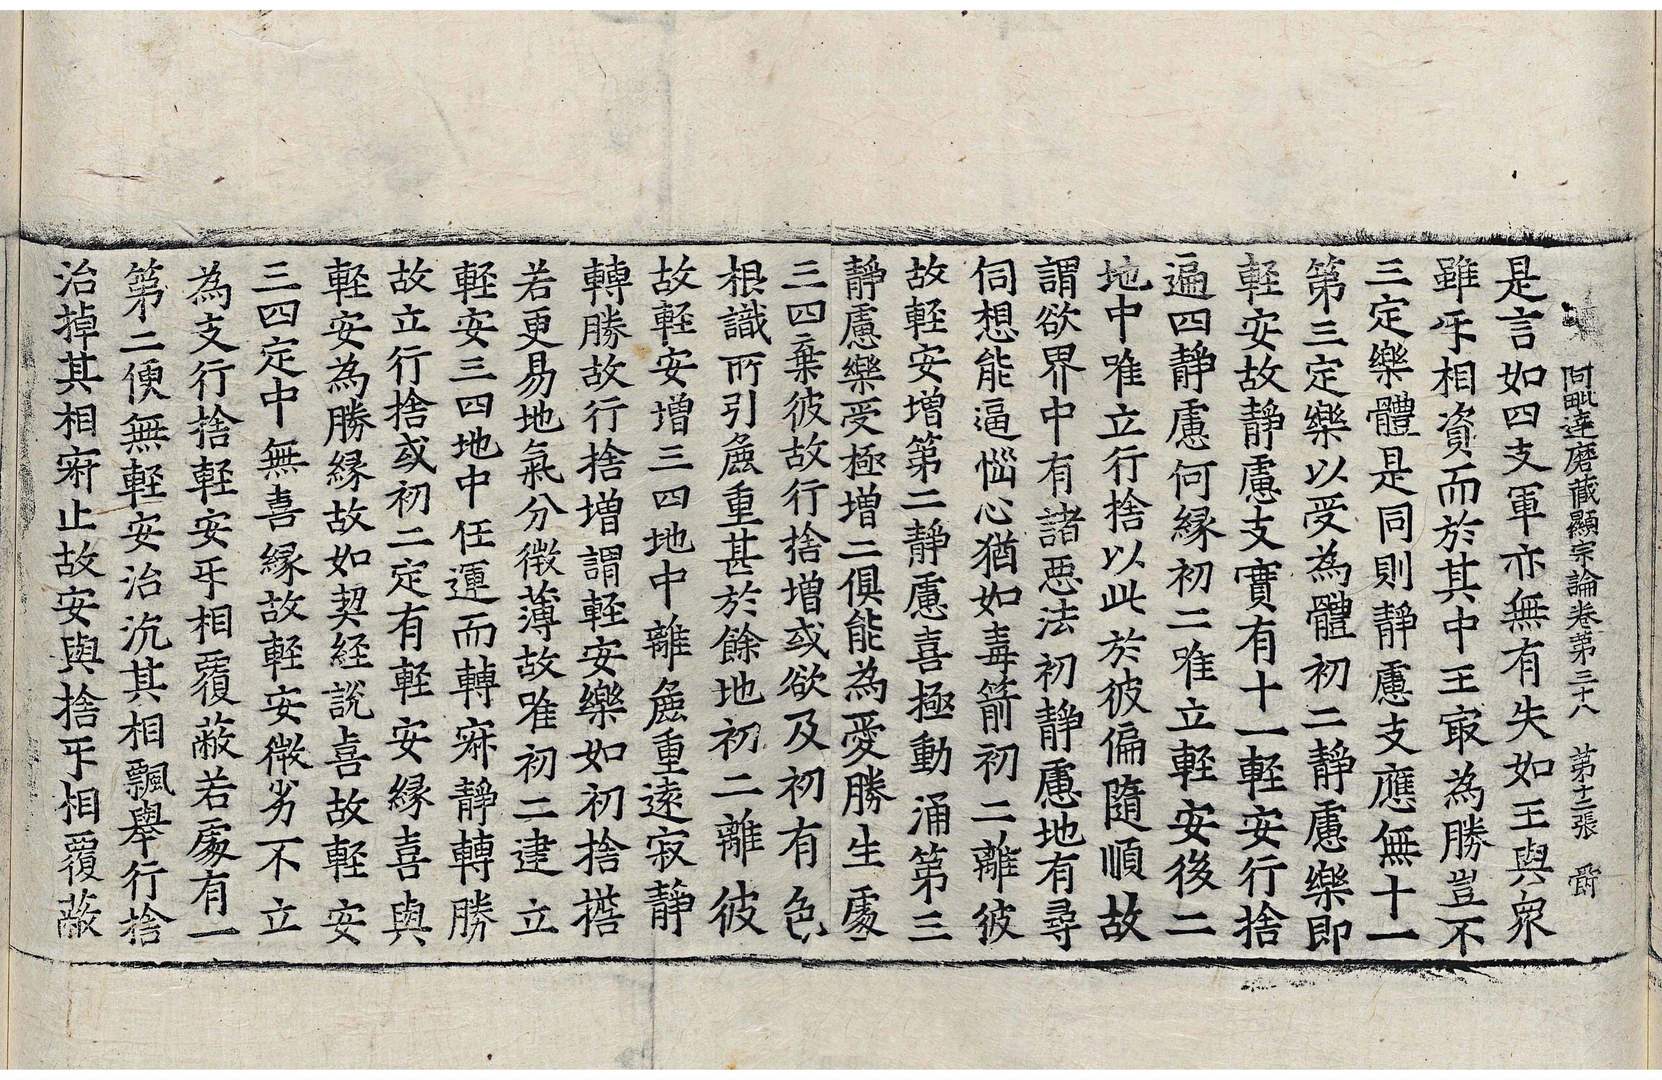 阿毗達磨藏顯宗論卷第三十八 第十二張 爵
是言如四支軍亦無有失如王與衆
雖㸦相資而於其中王㝡為勝豈不
三定樂體是同則靜慮支應無十一
第三定樂以受為體初二靜慮樂即
輕安故靜慮支實有十一輕安行捨
遍四靜慮何緣初二唯立輕安後二
地中唯立行捨以此於彼偏隨順故
謂欲界中有諸惡法初靜慮地有尋
伺想能逼惱心猶如毒箭初二離彼
故輕安增第二靜慮喜極動涌第三
靜慮樂受極增二俱能為愛勝生處
三四棄彼故行捨增或欲及初有色
根識所引麁重甚於餘地初二離彼
故輕安增三四地中離麁重遠寂靜
轉勝故行捨增謂輕安樂如初捨擔
若更易地氣分微薄故唯初二建立
輕安三四地中任運而轉寂靜轉勝
故立行捨或初二定有輕安緣喜與
輕安為勝緣故如契經說喜故輕安
三四定中無喜緣故輕安微劣不立
為支行捨輕安㸦相覆蔽若處有一
第二便無輕安治沉其相飄舉行捨
治掉其相寂止故安與捨㸦相覆蔽